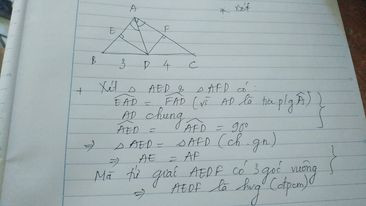 * Xét
A
E F
B 3 D 4 C
+ Xét △ AED & △ AFD có:
EAD = FAD (vì AD là tia p/g Â)
AD chung
AED = AFD = 90°
⇒ △AED = △AFD (ch.gn)
⇒ AE = AF
Mà tứ giác AEDF có 3 góc vuông
⇒ AEDF là hvg (đpcm)